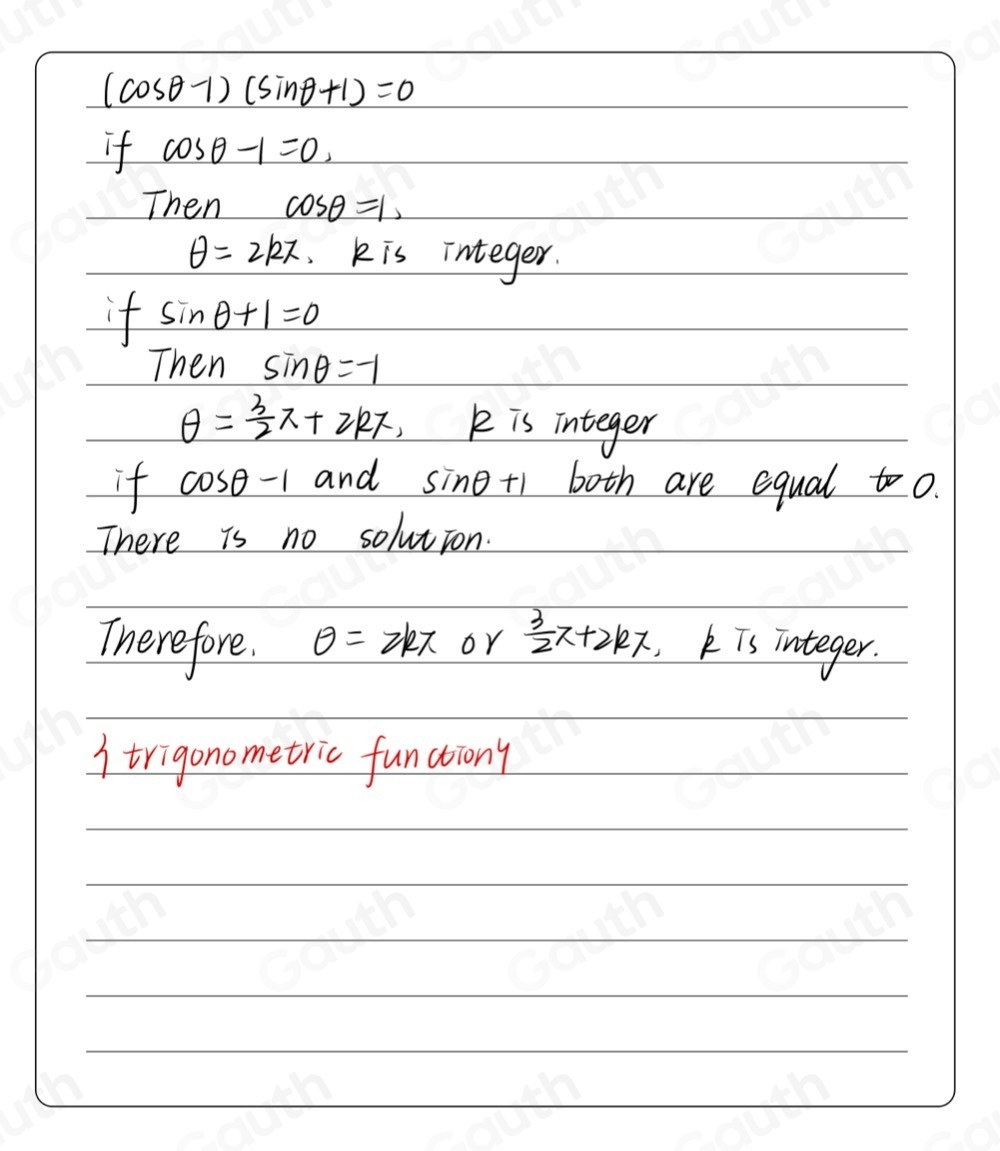 (cosθ-1)(sinθ+1)=0
if cosθ-1=0,
Then cosθ=1,
θ=2kπ, k is integer.
if sinθ+1=0
Then sinθ=-1
θ=3/2π+2kπ, k is integer
if cosθ-1 and sinθ+1 both are equal to 0.
There is no solution.
Therefore. θ=2kπ or 3/2π+2kπ, k is integer.
{trigonometric function}
Gauth